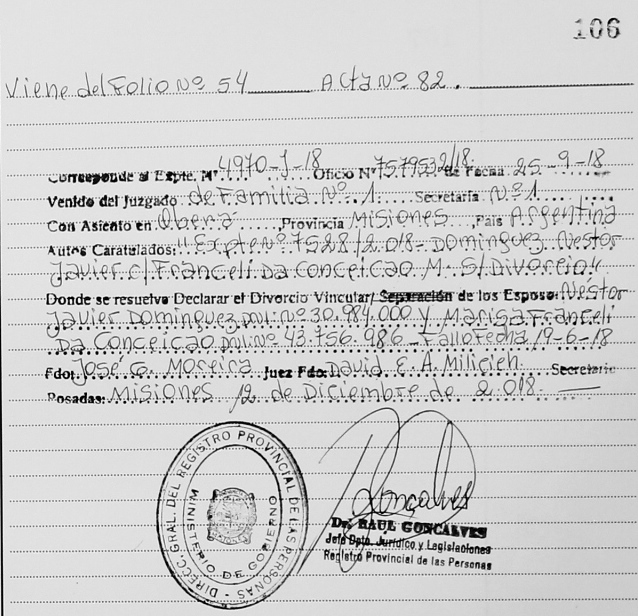 106
Viene del Folio Nº 54 Acta Nº 82.
Corresponde al Expte. Nº 4970-J-18 Oficio Nº 7579532/18 de Fecha 25-9-18
Venido del Juzgado de Familia Nº 1 Secretaría Nº 1
Con Asiento en Oberá, Provincia Misiones, Pais Argentina
Autos Caratulados: "Expte Nº 7528/2018- Dominguez Nestor
Javier c/ Franceli Da Conceicao M. S/Divorcio"
Donde se resuelve Declarar el Divorcio Vincular/ Separación de los Esposo: Néstor
Javier Dominguez DNI: Nº 30.984.000 y Marisa Franceli
Da Conceicao DNI: Nº 43.756.986 - Fallo Fecha 19-6-18
Fdo: José G. Moreira Juez Fdo: David E. A. Milicich Secretario
Posadas: Misiones 12 de Diciembre de 2018.
DIRECC. GRAL. DEL REGISTRO PROVINCIAL DE LAS PERSONAS -
MINISTERIO DE GOBIERNO
Goncalves
Dr. RAUL GONCALVES
Jefe Dpto. Jurídico y Legislaciones
Registro Provincial de las Personas